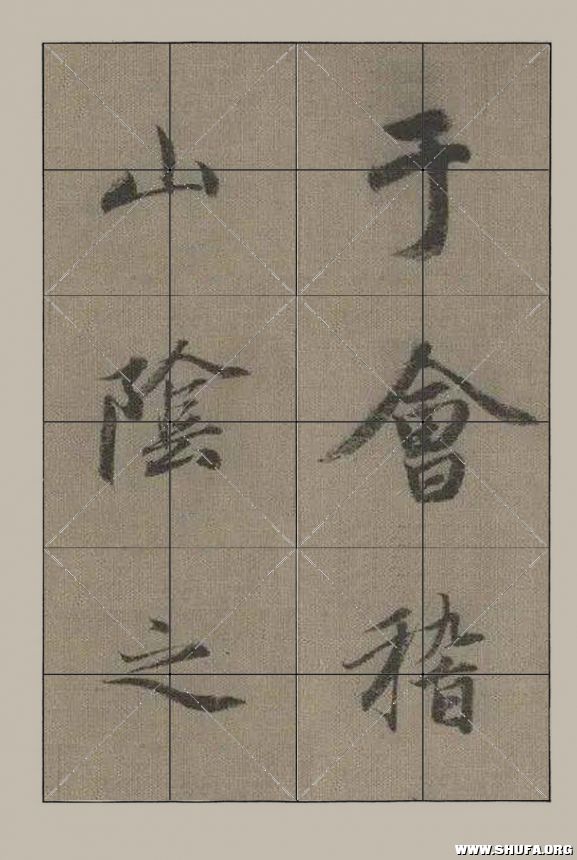 于會稽
山陰之
WWW.SHUFA.ORG